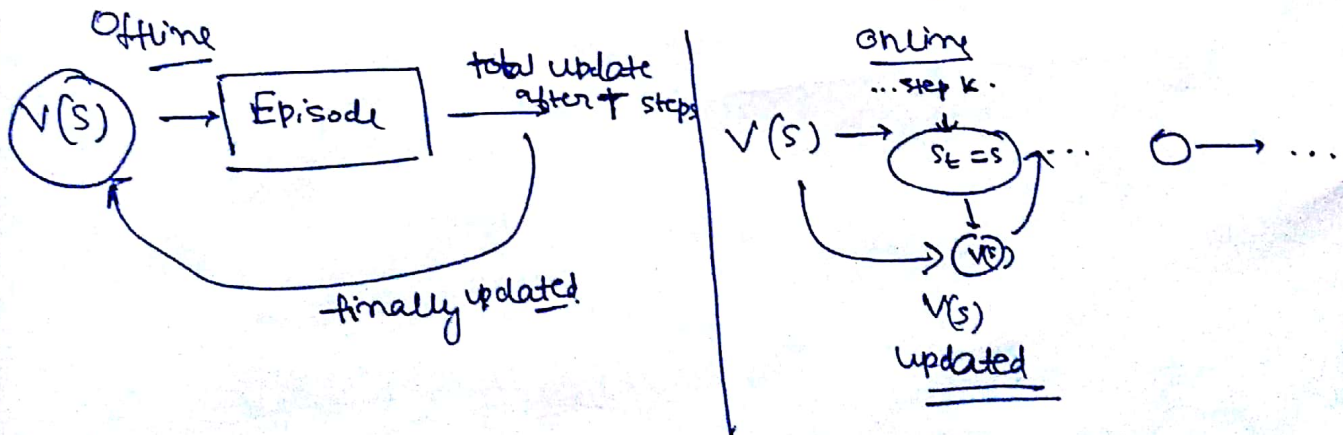 Offline
V(S)
Episode
total update
after T steps
finally updated
Online
...step k.
V(S)
S_t = s
...
...
V(s)
V(s)
updated